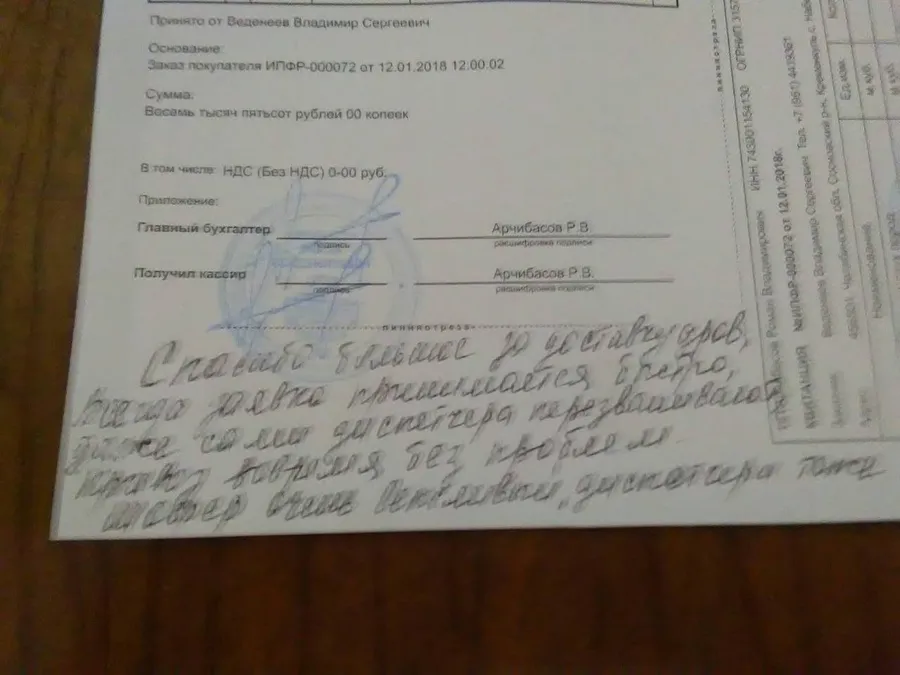 Принято от Веденеев Владимир Сергеевич
Основание:
Заказ покупателя ИПФР-000072 от 12.01.2018 12.00.02
Сумма:
Восемь тысяч пятьсот рублей 00 копеек
В том числе: НДС (Без НДС) 0-00 руб.
Приложение:
Главный бухгалтер Арчибасов Р.В
подпись расшифровка подписи
Получил кассир Арчибасов Р.В.
подпись расшифровка подписи
линия отреза
Спасибо большое за доставку дров,
Всегда заявка принимается быстро,
даже сами диспетчера перезванивают
привоз вовремя без проблем.
шофер очень вежливый, диспетчера тоже
Роман Владимирович ИНН 743001154130 ОГРНИП
КВИТАНЦИЯ № ИПФР-000072 от 12.01.2018г.
Веденеев Владимир Сергеевич Тел. +7 (961) 4479361
Челябинская обл, Сосновский р-н, Кременкуль с,
Наименование Ед.изм.
м.куб.